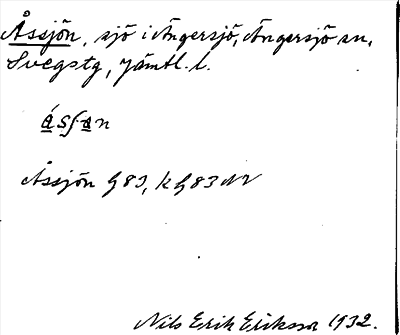 Åssjön, sjö i Ängersjö, Ängersjö sn,
Svegs tg, Jämtl. l.
Åssjön G83, k G83 NV
Nils Erik Eriksson 1932.